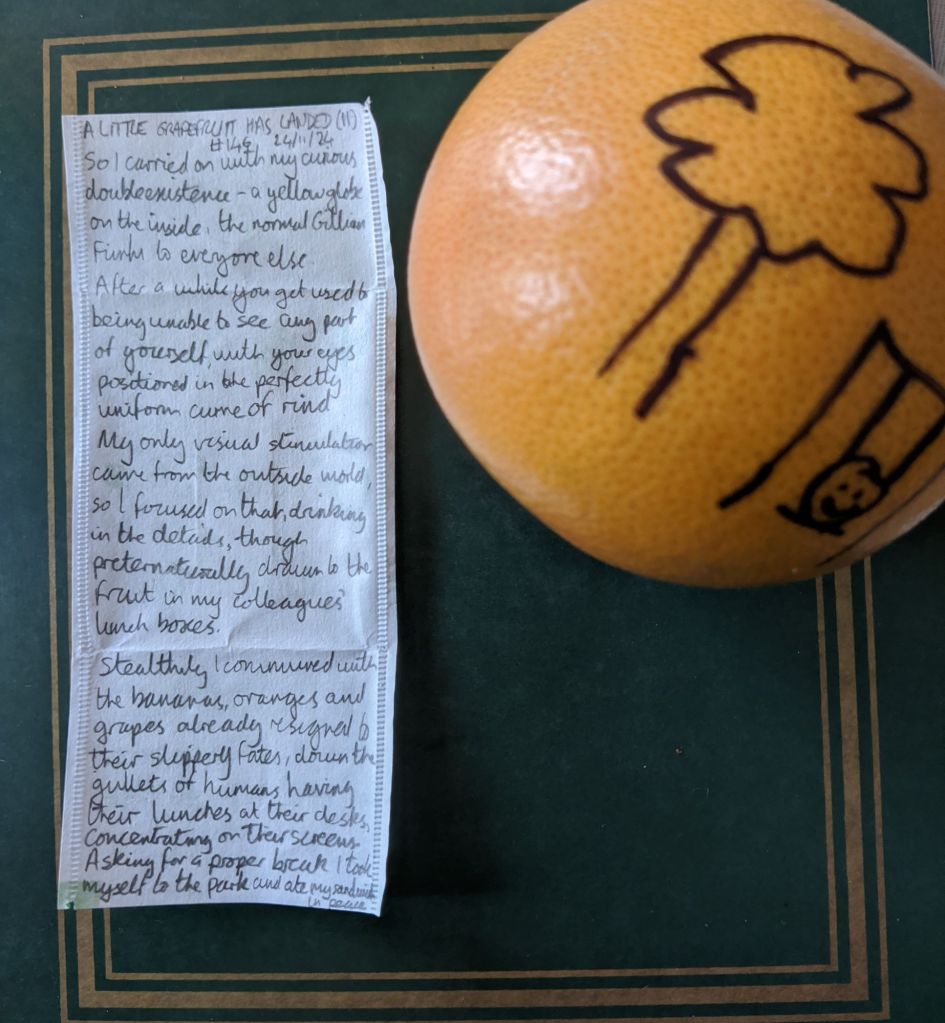 A LITTLE GRAPEFRUIT HAS LANDED (11)
#149 24/11/24
So I carried on with my curious
double existence – a yellow globe
on the inside, the normal Gillian
Funk to everyone else.
After a while you get used to
being unable to see any part
of yourself, with your eyes
positioned in the perfectly
uniform curve of rind
My only visual stimulation
came from the outside world,
so I focused on that, drinking
in the details, though
preternaturally drawn to the
fruit in my colleagues'
lunch boxes.
Stealthily I communed with
the bananas, oranges and
grapes already resigned to
their slippery fates, down the
gullets of humans having
their lunches at their desks,
concentrating on their screens.
Asking for a proper break I took
myself to the park and ate my sandwich
in peace